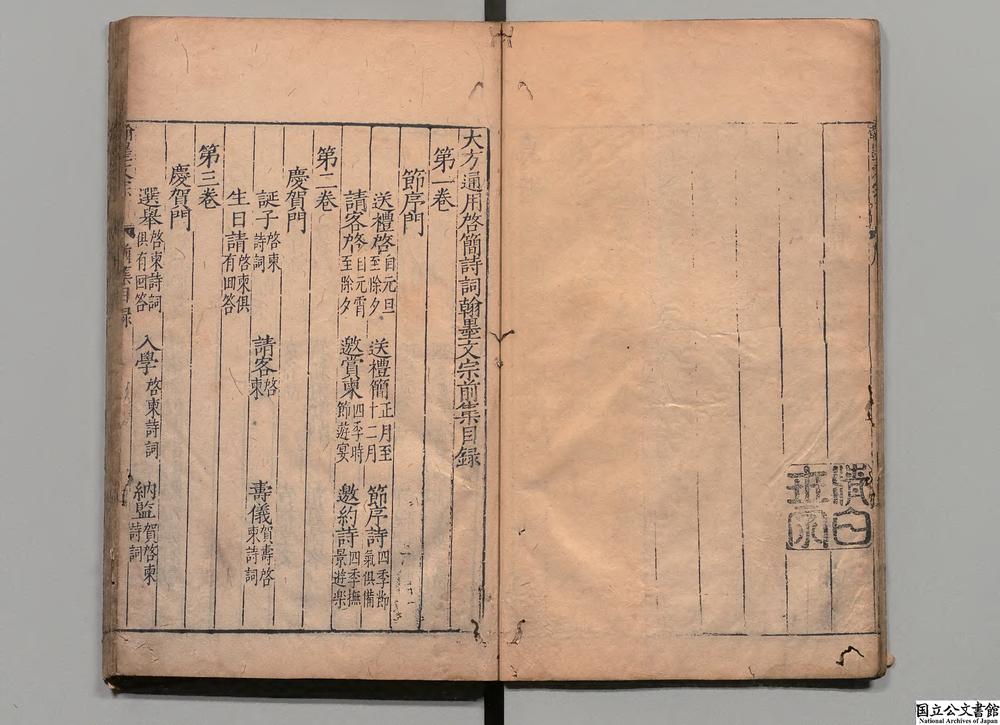 大方通用啓簡詩詞翰墨文宗前集目録
第一卷
節序門
送禮啓 自元旦至除夕 送禮簡 正月至十二月 節序詩 四季節氣俱備
請客啓 自元宵至除夕 邀賞柬 四季時節遊宴 邀約詩 四季撫景遊樂
第二卷
慶賀門
誕子 啓柬詩詞 請客 啓柬 壽儀 賀壽啓柬詩詞
生日請 啓柬俱有回答
第三卷
慶賀門
選舉 啓柬詩詞俱有回答 入學 啓柬詩詞 納監 賀啓柬詩詞
前集目録
国立公文書館
National Archives of Japan